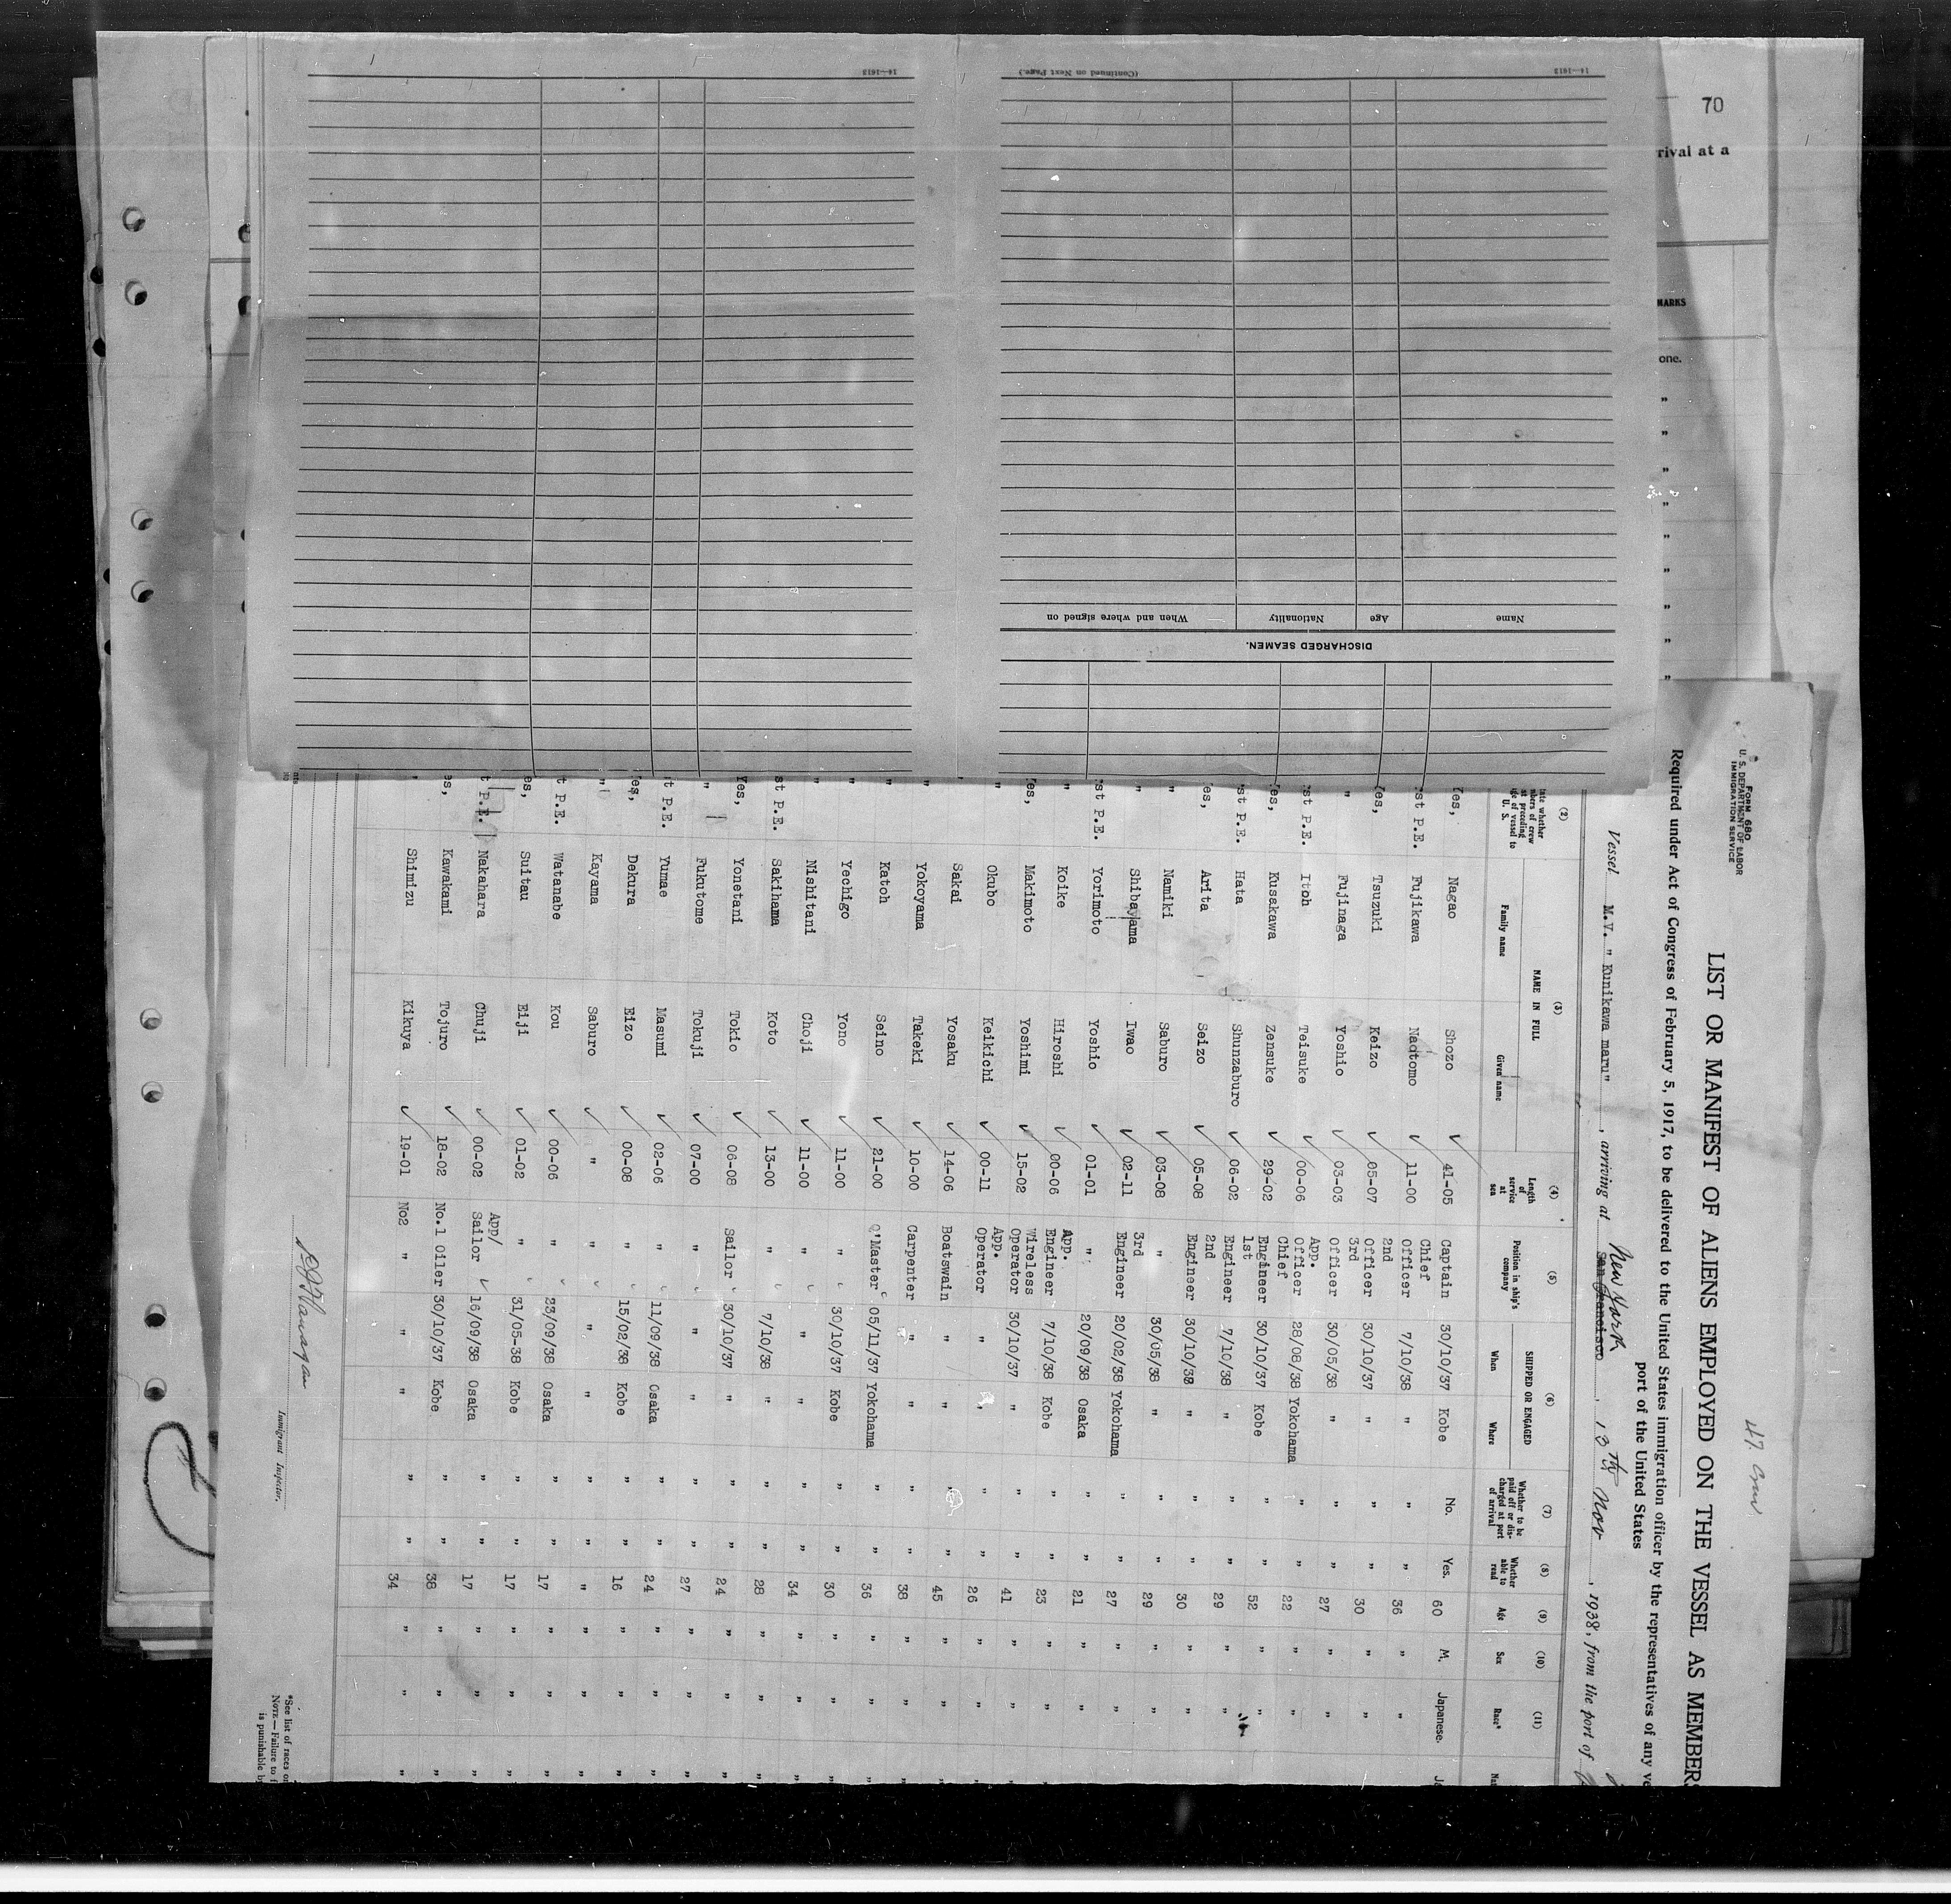 14—1613
(Continued on Next Page.)
14—1613
DISCHARGED SEAMEN.
Name Age Nationality When and where signed on
70
rival at a
MARKS
one.
47 Crew
FORM 680
U. S. DEPARTMENT OF LABOR
IMMIGRATION SERVICE
LIST OR MANIFEST OF ALIENS EMPLOYED ON THE VESSEL AS MEMBERS
Required under Act of Congress of February 5, 1917, to be delivered to the United States immigration officer by the representatives of any ve
port of the United States
Vessel M.V. "Kunikawa maru", arriving at San Francisco New York, 13th Nov, 1938, from the port of
(2) (3) (4) (5) (6) (7) (8) (9) (10) (11)
NAME IN FULL
SHIPPED OR ENGAGED
Family name Given name
Length of service at sea
Position in ship's company
When Where
Whether to be paid off or discharged at port of arrival
Whether able to read
Age Sex Race*
Yes, Nagao Shozo 41-05 Captain 30/10/37 Kobe No. Yes. 60 M. Japanese.
1st P.E. Fujikawa Naotomo 11-00 Chief Officer 7/10/38 " " " 36 " "
Yes, Tsuzuki Keizo 05-07 2nd Officer 30/10/37 " " " 30 " "
" Fujinaga Yoshio 03-03 3rd Officer 30/05/38 " " " 27 " "
1st P.E. Itoh Teisuke 00-06 App. Officer 28/08/38 Yokohama " " 22 " "
Yes, Kusakawa Zensuke 29-02 Chief Engineer 30/10/37 Kobe " " 52 " "
1st P.E. Hata Shunzaburo 06-02 1st Engineer 7/10/38 " " " 29 " "
Yes, Arita Seizo 05-08 2nd Engineer 30/10/38 " " " 30 " "
" Namiki Saburo 03-08 " 30/05/38 " " " 29 " "
" Shibayama Iwao 02-11 3rd Engineer 20/02/38 Yokohama " " 27 " "
1st P.E. Yorimoto Yoshio 01-01 " 20/09/38 Osaka " " 21 " "
" Koike Hiroshi 00-06 App. Engineer 7/10/38 Kobe " " 23 " "
Yes, Makimoto Yoshimi 15-02 Wireless Operator 30/10/37 " " " 41 " "
" Okubo Keikichi 00-11 App. Operator " " " " 26 " "
" Sakai Yosaku 14-06 Boatswain " " " " 45 " "
" Yokoyama Takeki 10-00 Carpenter " " " " 38 " "
" Katoh Seino 21-00 Q'Master 05/11/37 Yokohama " " 36 " "
" Yechigo Yono 11-00 " 30/10/37 Kobe " " 30 " "
" Nishitani Choji 11-00 " " " " " 34 " "
1st P.E. Sakihama Koto 13-00 " 7/10/38 " " " 28 " "
Yes, Yonetani Tokio 06-08 Sailor 30/10/37 " " " 24 " "
" Fukutome Tokuji 07-00 " " " " " 27 " "
1st P.E. Yumae Masumi 02-06 " 11/09/38 Osaka " " 24 " "
Yes, Dekura Eizo 00-08 " 15/02/38 Kobe " " 16 " "
" Kayama Saburo " " " " " " " " "
1st P.E. Watanabe Kou 00-06 " 23/09/38 Osaka " " 17 " "
es, Suitau Eiji 01-02 " 31/05-38 Kobe " " 17 " "
t P.E. Nakahara Chuji 00-02 App/ Sailor 16/09/38 Osaka " " 17 " "
es, Kawakami Tojuro 18-02 No.1 Oiler 30/10/37 Kobe " " 38 " "
" Shimizu Kikuya 19-01 No2 " " " " " 34 " "
Immigrant Inspector.
*See list of races on
NOTE.—Failure to f
is punishable b